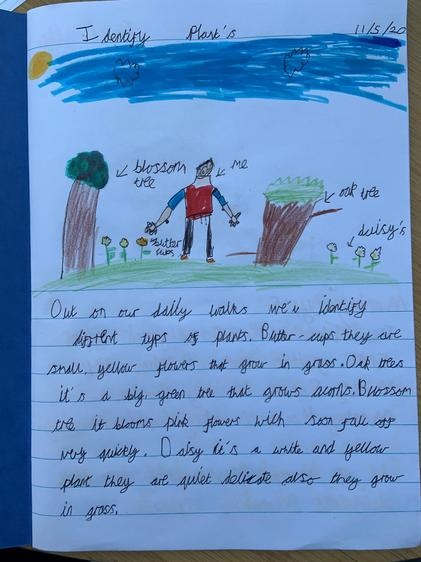 Identify Plant's 11/5/20
blossom
tree
me
oak tree
daisy's
Butter
cups
Out on our daily walks we'v identify
diffrent typs of plants. Butter-cups they are
small, yellow flowers that grow in grass. Oak trees
it's a big, green tree that grows acorns. Blossom
tree it blooms pink flowers wich soon fall off
very quickly. Daisy it's a white and yellow
plant they are quiet delicate also they grow
in grass.